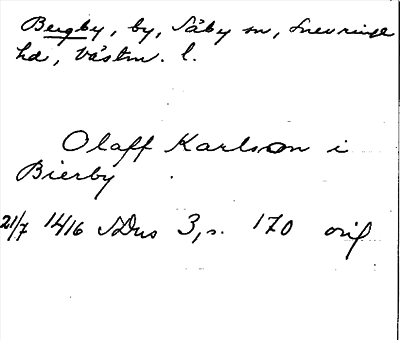 Bergby, by, Säby sn, Snevringe
hd, Västm. l.
Olaff Karlsson i
Bierby
21/7 1416 SDns 3, s. 170 orig